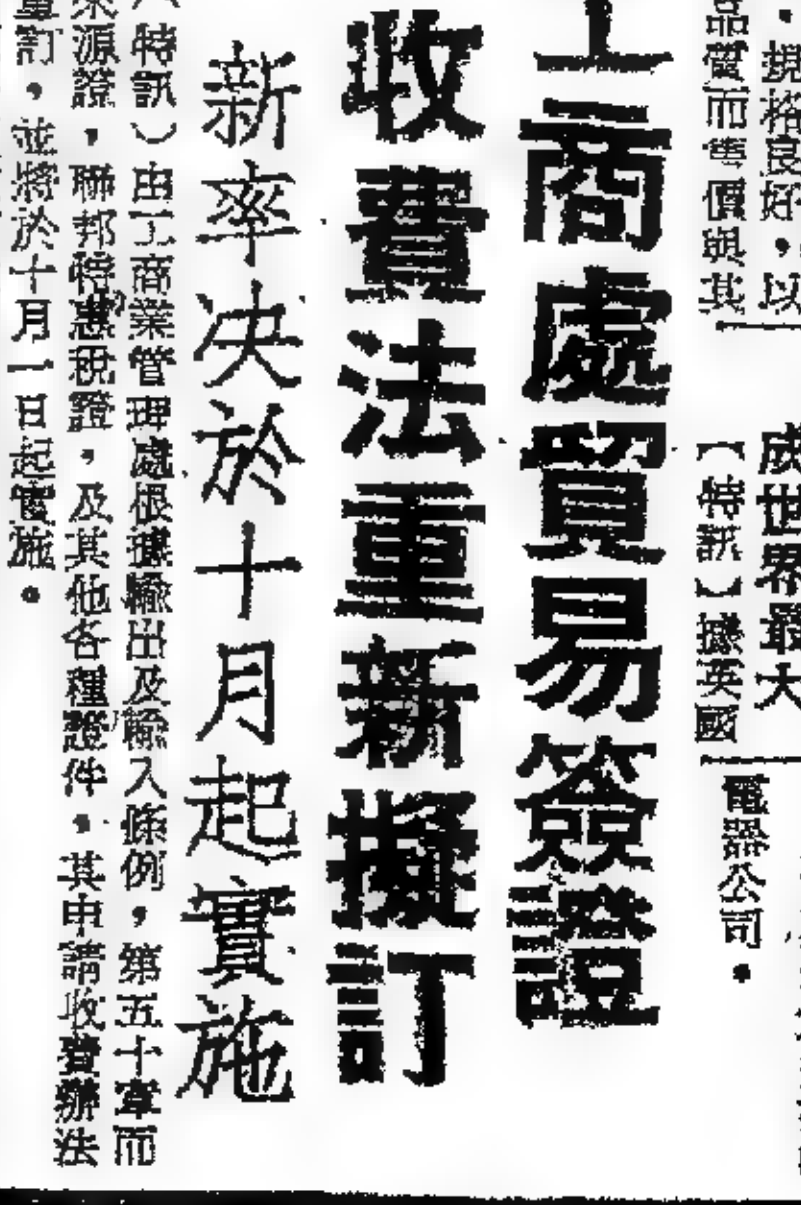 品質而售價與其
規格良好，以
成世界最大
【特訊】據英國
電器公司。
工商處貿易簽證
收費法重新擬訂
新率決於十月起實施
（特訊）由工商業管理處根據輸出及輸入條例，第五十章而
來源證，聯邦特惠稅證，及其他各種證件，其申請收費辦法
重訂，並將於十月一日起實施。